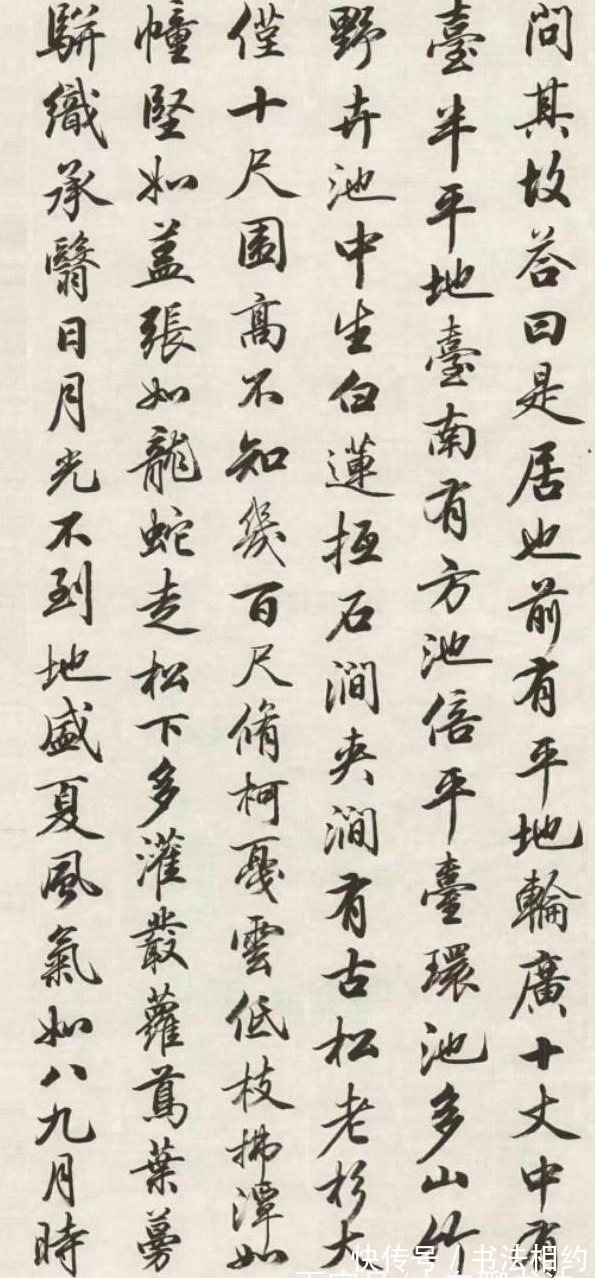 問其故荅曰是居也前有平地輪廣十丈中有
臺半平地臺南有方池倍平臺環池多山竹
野卉池中生白蓮抵石澗夾澗有古松老杉大
僅十尺圍高不知幾百尺脩柯戛雲低枝拂潭如
幢竪如盖張如龍蛇走松下多灌叢蘿蔦葉蔓
駢織承翳日月光不到地盛夏風氣如八九月時
快传号 / 书法相约